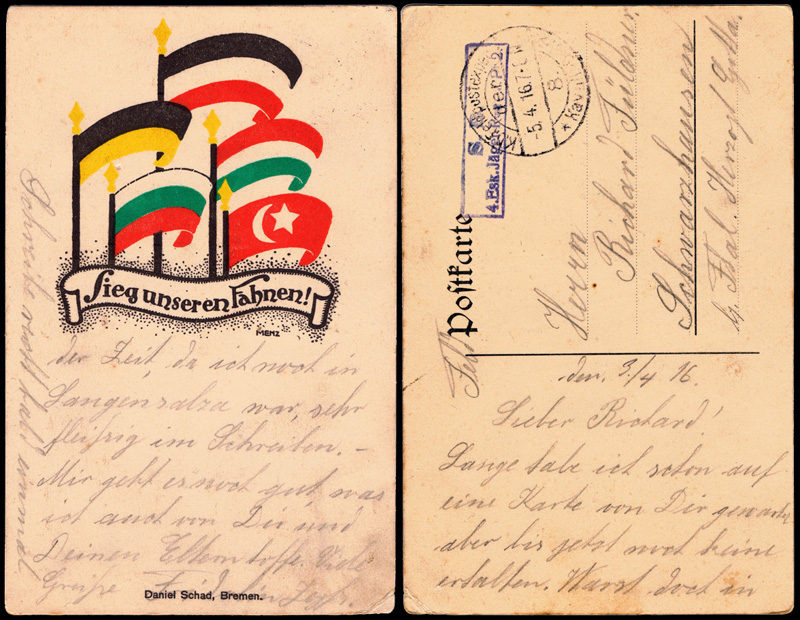 Sieg unseren Fahnen!
MENZ
der Zeit, da ich noch in
Langensalza war, sehr
fleißig im Schreiben. –
Mir geht es noch gut, was
ich auch von Dir und
Deinen Eltern hoffe. Viele
Grüße
Schreibe recht bald einmal
Daniel Schad, Bremen.
5.4.16.7-8
8.
* Kav.
S. B.
4. Esk. Jäg
Feld
Postkarte
Herrn
Richard Füldner
Schwarzhausen
b/ Thal. Herzogt. Gotha.
den, 3/4 16.
Lieber Richard!
Lange habe ich schon auf
eine Karte von Dir gewartet
aber bis jetzt noch keine
erhalten. Warst doch in